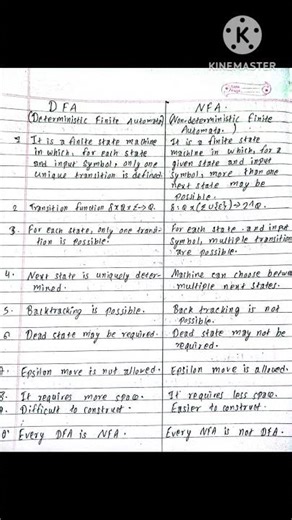 KINEMASTER
DFA
(Deterministic Finite Automata)
NFA.
(Non-deterministic Finite
Automata.)
It is a finite state machine
in which, for each state
and input symbol, only one
unique transition is defined.
It is a finite state
machine in which, for a
given state and input
symbol, more than one
next state may be
possible.
2. Transition function δ: Q x Σ → Q.
δ: Q x {Σ ∪ {ε}} → 2^Q.
3. For each state, only one transi
tion is possible.
For each state and input
symbol, multiple transition
are possible.
4. Next state is uniquely deter-
mined.
Machine can choose betwe
multiple next states.
5. Backtracking is possible.
Back tracking is not
possible.
6. Dead state may be required.
Dead state may not be
required.
7. Epsilon move is not allowed.
Epsilon move is allowed.
8. It requires more space.
It requires less space.
9. Difficult to construct.
Easier to construct.
Every DFA is NFA.
Every NFA is not DFA.